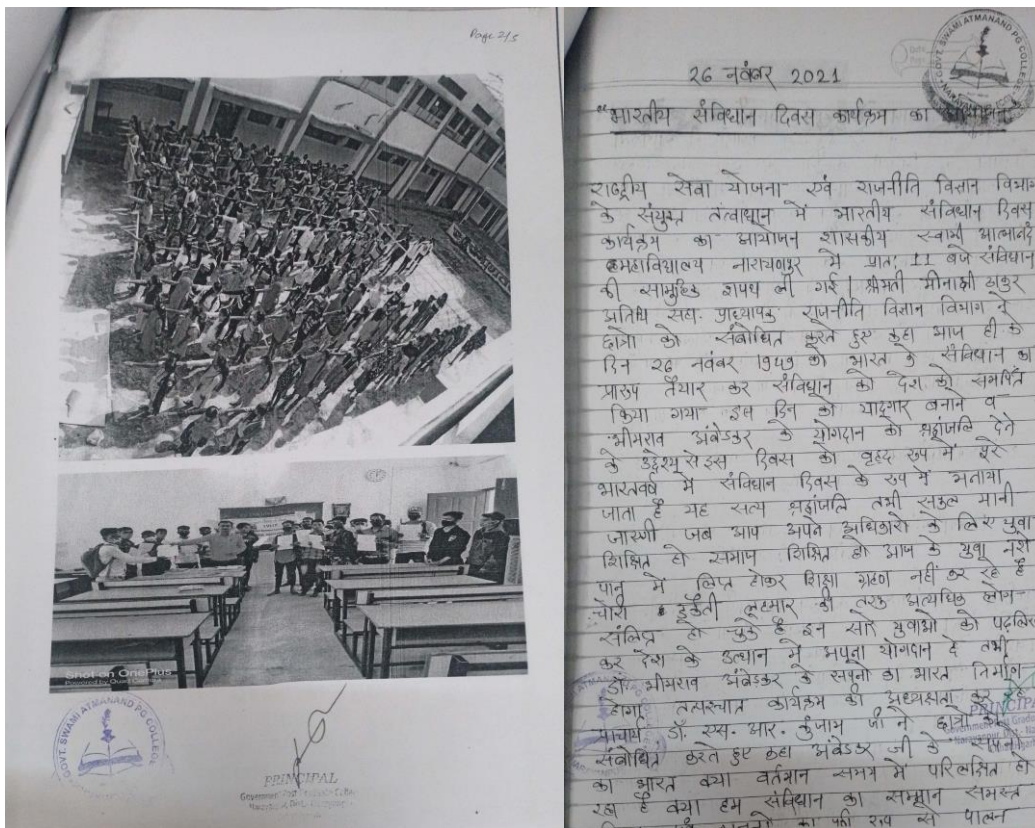 Page 2/5
Shot on OnePlus
Powered by Quad Camera
GOVT. SWAMI ATMANAND PG COLLEGE
PRINCIPAL
GOVT. SWAMI ATMANAND PG COLLEGE
26 नवंबर 2021
"भारतीय संविधान दिवस कार्यक्रम का
राष्ट्रीय सेवा योजना एवं राजनीति विज्ञान विभाग
के संयुक्त तत्वाधान में भारतीय संविधान दिवस
कार्यक्रम का आयोजन शासकीय स्वामी आत्मानंद
महाविद्यालय नारायणपुर में प्रातः 11 बजे संविधान
की सामुहिक शपथ ली गई। श्रीमती मीनाक्षी ठाकुर
अतिथि सहा. प्राध्यापक राजनीति विज्ञान विभाग ने
छात्रो को संबोधित करते हुए कहा आज ही के
दिन 26 नवंबर 1949 को भारत के संविधान का
प्रारूप तैयार कर संविधान को देश को समर्पित
किया गया इस दिन को यादगार बनाने व
भीमराव अंबेडकर के योगदान को श्रद्धांजलि देने
के उद्देश्य से इस दिवस को वृहद रूप में पूरे
भारतवर्ष में संविधान दिवस के रूप में मनाया
जाता है यह सत्य श्रद्धांजलि तभी सफल मानी
जाएगी जब आप अपने अधिकारो के लिए युवा
शिक्षित हो समाज शिक्षित हो आज के युवा नशे
पान में लिप्त होकर शिक्षा ग्रहण नहीं कर रहे है
चोरी डकैती लूटमार की तरफ अत्यधिक लोग
संलिप्त हो चुके है इन सारे युवाओ को पढ़लिख
कर देश के उत्थान में अपना योगदान दे तभी
डॉ भीमराव अंबेडकर के सपनो का भारत निर्माण
होगा तत्पश्चात कार्यक्रम की अध्यक्षता कर रहे
प्राचार्य डॉ. एस. आर. कुंजाम जी ने छात्रो को
संबोधित करते हुए कहा अंबेडकर जी के सपनो
का भारत क्या वर्तमान समय में परिलक्षित हो
रहा है क्या हम संविधान का सम्मान समस्त
का सही रूप से पालन